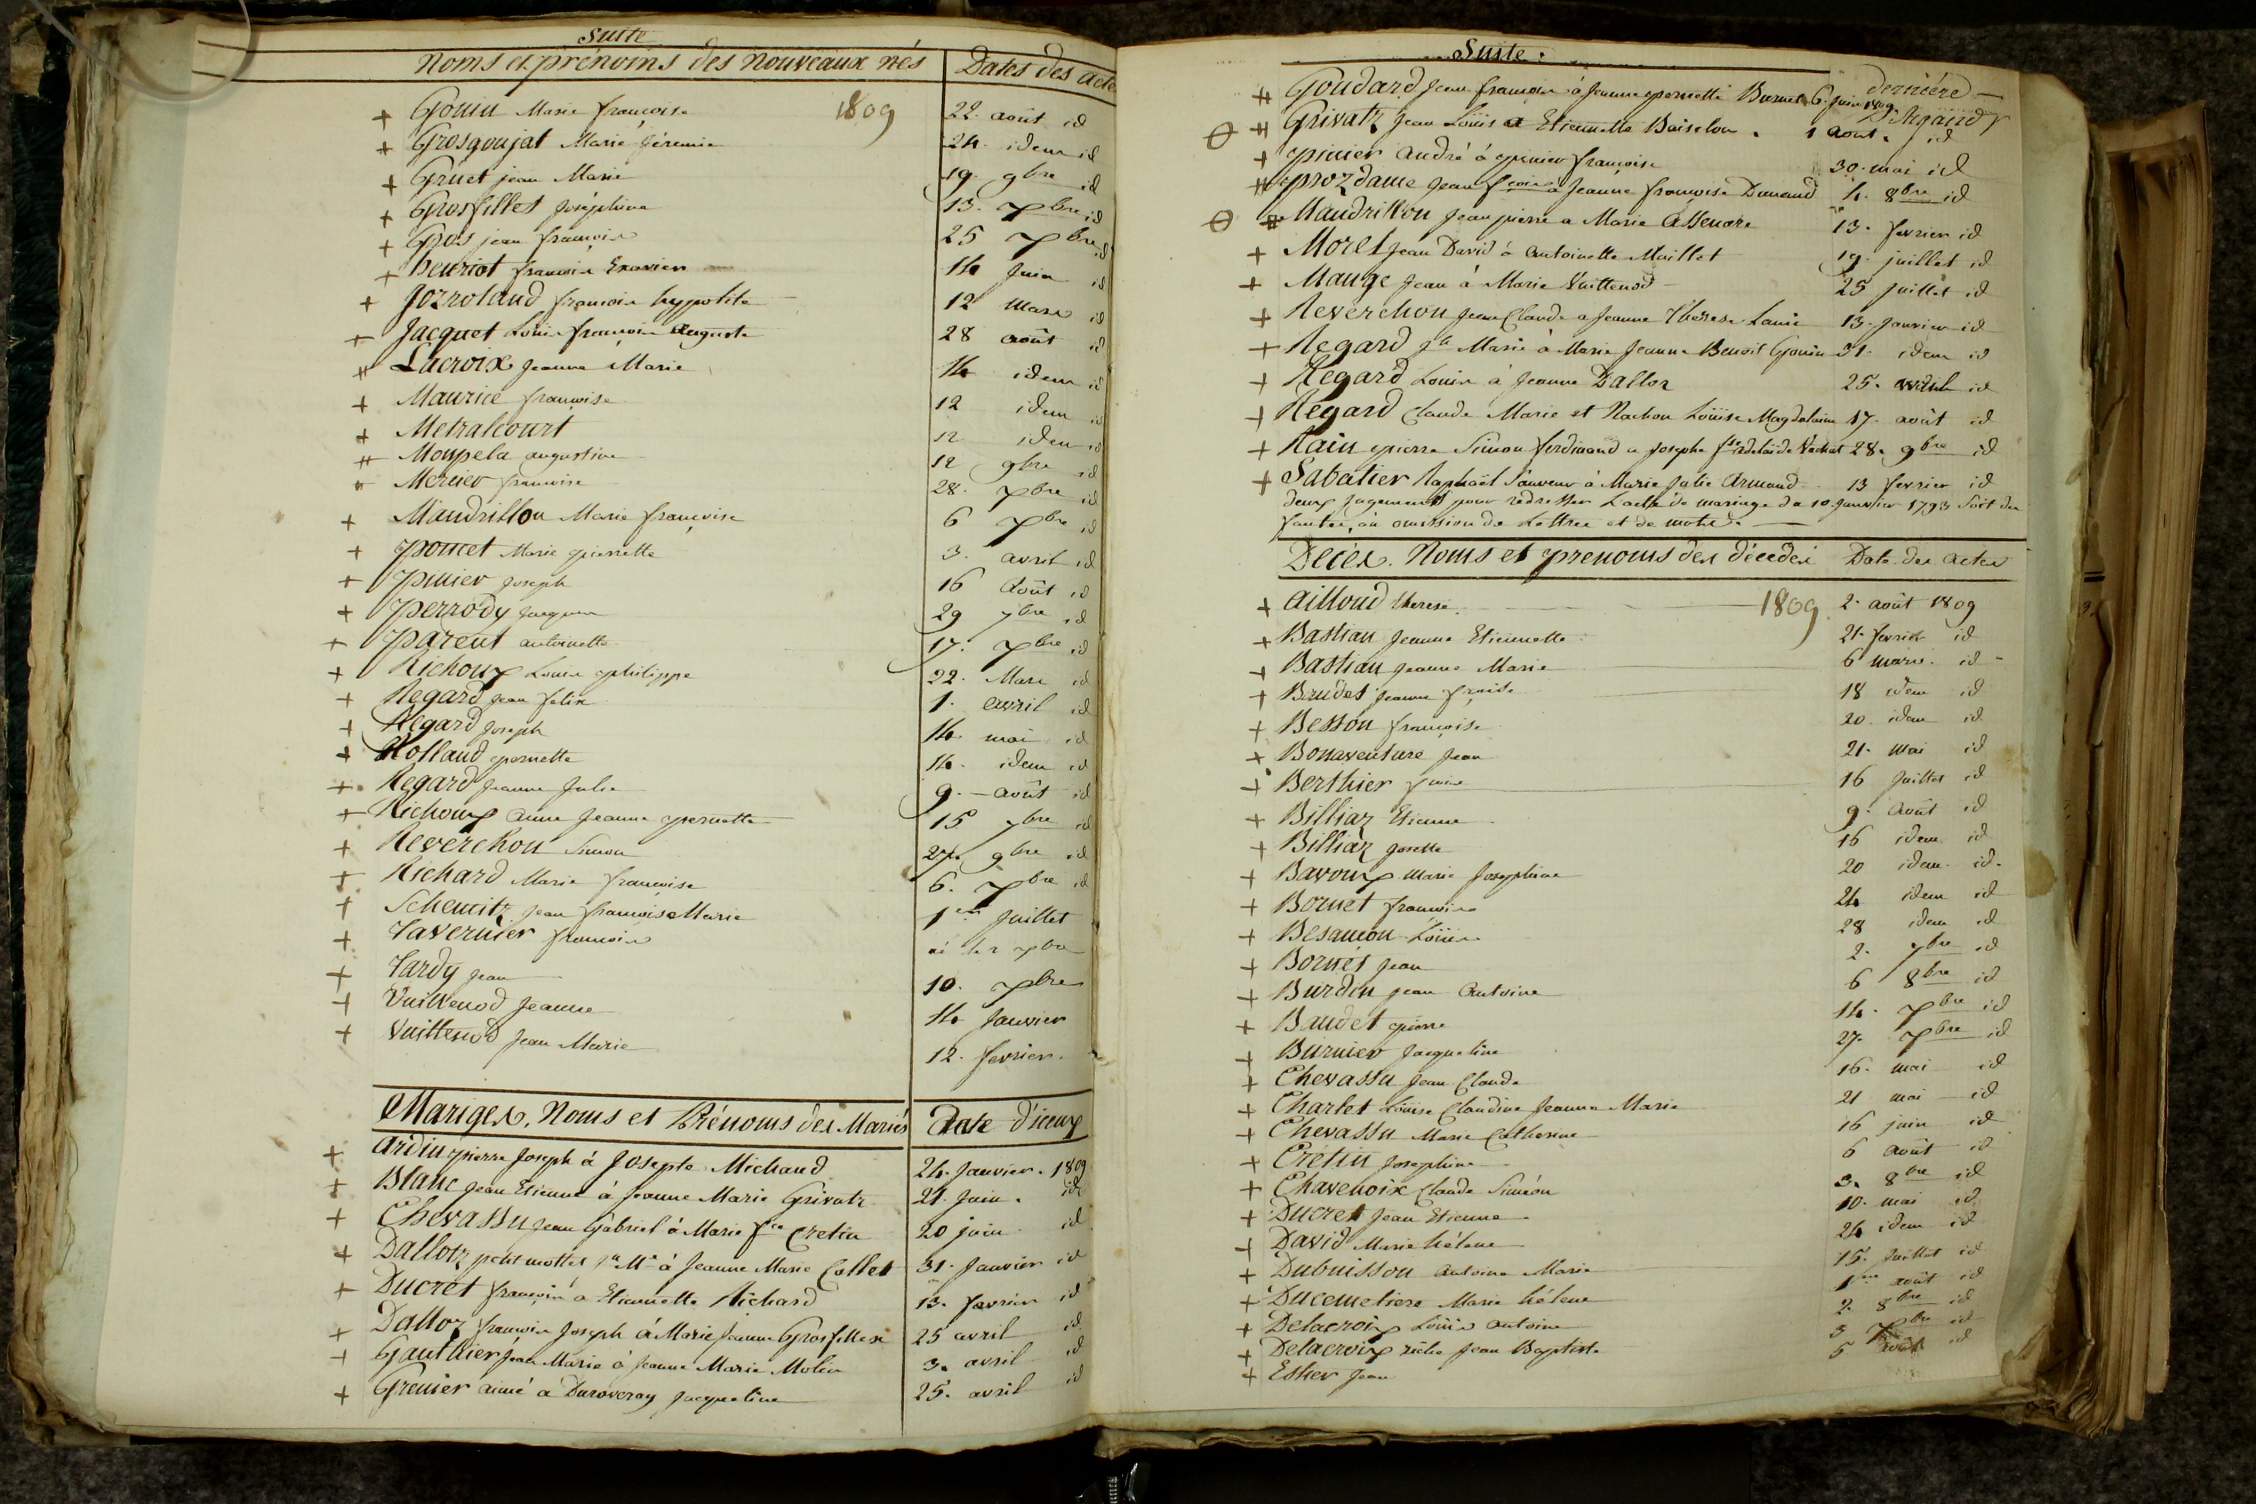 Suite
Noms et prénoms des Nouveaux nés Dates des acte
Gouin Marie françoise 1809 22. août id
Grosgoujat Marie 24. idem id
Gruet jean Marie 19. 9bre id
Grosfillet Joséphine 13. 7bre id
Gros jean françois 25 7bre id
henriot françois Exavier 14 Juin id
Jozroland françois hyppolite 12 Mars id
Jacquet Louis françois Auguste 28 août id
Lacroix Jeanne Marie 14 idem id
Maurice françoise 12 idem id
Metralcourt 12 idem id
Monpela augustine 12 9bre id
Mercier françoise 28. 7bre id
Mandrillon Marie françoise 6 7bre id
poncet Marie pierrette 3. avril id
pinier Joseph 16 Août id
perrody Jacques 29 7bre id
parent antoinette 17. 7bre id
Richoux Louis philippe 22. Mars id
Regard Jean felix 1. avril id
Regard Joseph 14. mai id
Rolland pernette 14. idem id
Regard Jeanne Julie 9. août id
Richoux anne Jeanne pernette 15 7bre id
Reverchon Simon 27. 9bre id
Richard Marie françoise 6. 7bre id
Schemitz Jean françois Marie 1er Juillet
Tavernier françois 7bre
Tardy Jean 10. 7bre
Vuillenod Jeanne 14 Janvier
Vuillenod Jean Marie 12. fevrier.
Mariges. Noms et Prénoms des Mariés Date d'iceux
Ardin pierre Joseph à Josepte Michaud 24. Janvier. 1809
Blanc Jean Etienne à Jeanne Marie Grivatz 21. Juin. id
Chevassu Jean Gabriel à Marie fse Cretin 20 juin id
Dallotz petit mottet à Jeanne Marie Collet 31. Janvier id
Ducret françois à Etiennette Richard 13. fevrier id
Dalloz françois Joseph à Marie Jeanne Grosfillex 25 avril id
Gauthier Jean Marie à Jeanne Marie Molin 3. avril id
Grenier aimé à Duroveray Jacqueline 25. avril id
Suite.
derniére
Goudard Jean françois à Jeanne pernette Burnet 6. juin 1809
Grivatz Jean Louis a Etiennette Boiselon. 1 août. id
pinier andré à pinier françoise 30. mai id
prozdame Jean fçois à Jeanne françoise Danaud 4. 8bre id
Mandrillon Jean pierre a Marie 13. fevrier id
Morel Jean David à antoinette Maillet 19. juillet id
Mauge Jean à Marie Vuillenod 25 juillet id
Reverchon Jean Claude a Jeanne Therese 13. Janvier id
Regard Jh Marie à Marie Jeanne Benoit Gouin 31. idem id
Regard Louis à Jeanne Dalloz 25. avril id
Regard Claude Marie et Nachon Louise Magdelaine 17. août id
Rain pierre Simon ferdinand a Josephe 28. 9bre id
Sabatier Raphaël Sauveur à Marie Julie Armand 13 fevrier id
deux jugements pour redresser L'acte de mariage du 10. Janvier 1793 Soit des
fautes, ou omission de Lettres et de mots
Décès. Noms et prenoms des décédés Date des actes
Ailloud therese 1809 2. août 1809
Bastian Jeanne Etiennette 21. fevrier id
Bastian Jeanne Marie 6 mars. id
Baudet Jeanne 18 idem id
Besson françoise 20. idem id
Bonaventure Jean 21. Mai id
Berthier 16 Juillet id
Billiaz Etienne 9. Août id
Billiaz Josette 16 idem id
Bavoux Marie Josephine 20 idem. id.
Bornet françois 24 idem id
Besançon Louis 28 idem id
Bornet Jean 2. 7bre id
Burdin Jean Antoine 6 8bre id
Baudet pierre 14. 7bre id
Burnier Jacqueline 27. 7bre id
Chevassu Jean Claude 16. mai id
Charlet Louise Claudine Jeanne Marie 21 mai id
Chevassu Marie Catherine 16 juin id
Cretin Josephine 6 août id
Chavenoix Claude Siméon 3. 8bre id
Ducret Jean Etienne 10. mai id
David Marie hélene 24 idem id
Dubuisson Antoine Marie 15. Juillet id
Ducemetiere Marie hélene 1er août id
Delacroix Louis antoine 2. 8bre id
Delacroix riche Jean Baptiste 3 id
Esker Jean 5 id